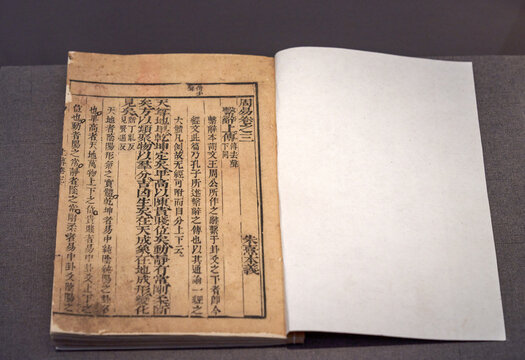 周易卷之三
朱熹本義
繫辭上傳 傳去聲下同
繫辭本謂文王周公所作之辭繫于卦爻之下者即今
經文此篇乃孔子所述繫辭之傳也以其通論一經之
大體凡例故无經可附而自分上下云
天尊地卑乾坤定矣卑高以陳貴賤位矣動靜有常剛柔斷
矣方以類聚物以羣分吉凶生矣在天成象在地成形變化
見矣 斷丁亂反見賢遍反
天地者陰陽形氣之實體乾坤者易中純陰純陽之卦
名也卑高者天地萬物上下之位貴賤者易中卦爻上下之
位也動者陽之常靜者陰之常剛柔者易中卦爻陰陽之